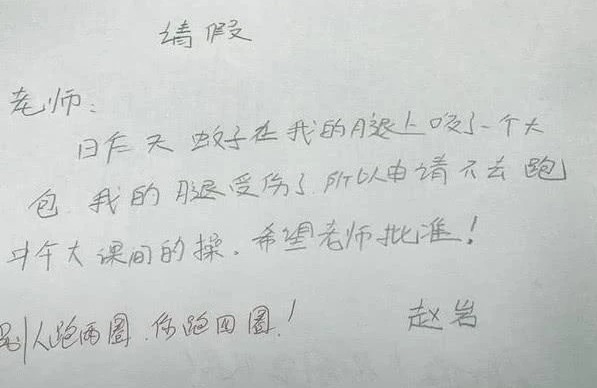 请假
老师：
昨天 蚊子在我的腿上咬了一个大
包.我的腿受伤了.所以申请不去跑
上午大课间的操.希望老师批准！
赵岩
别人跑两圈.你跑四圈！